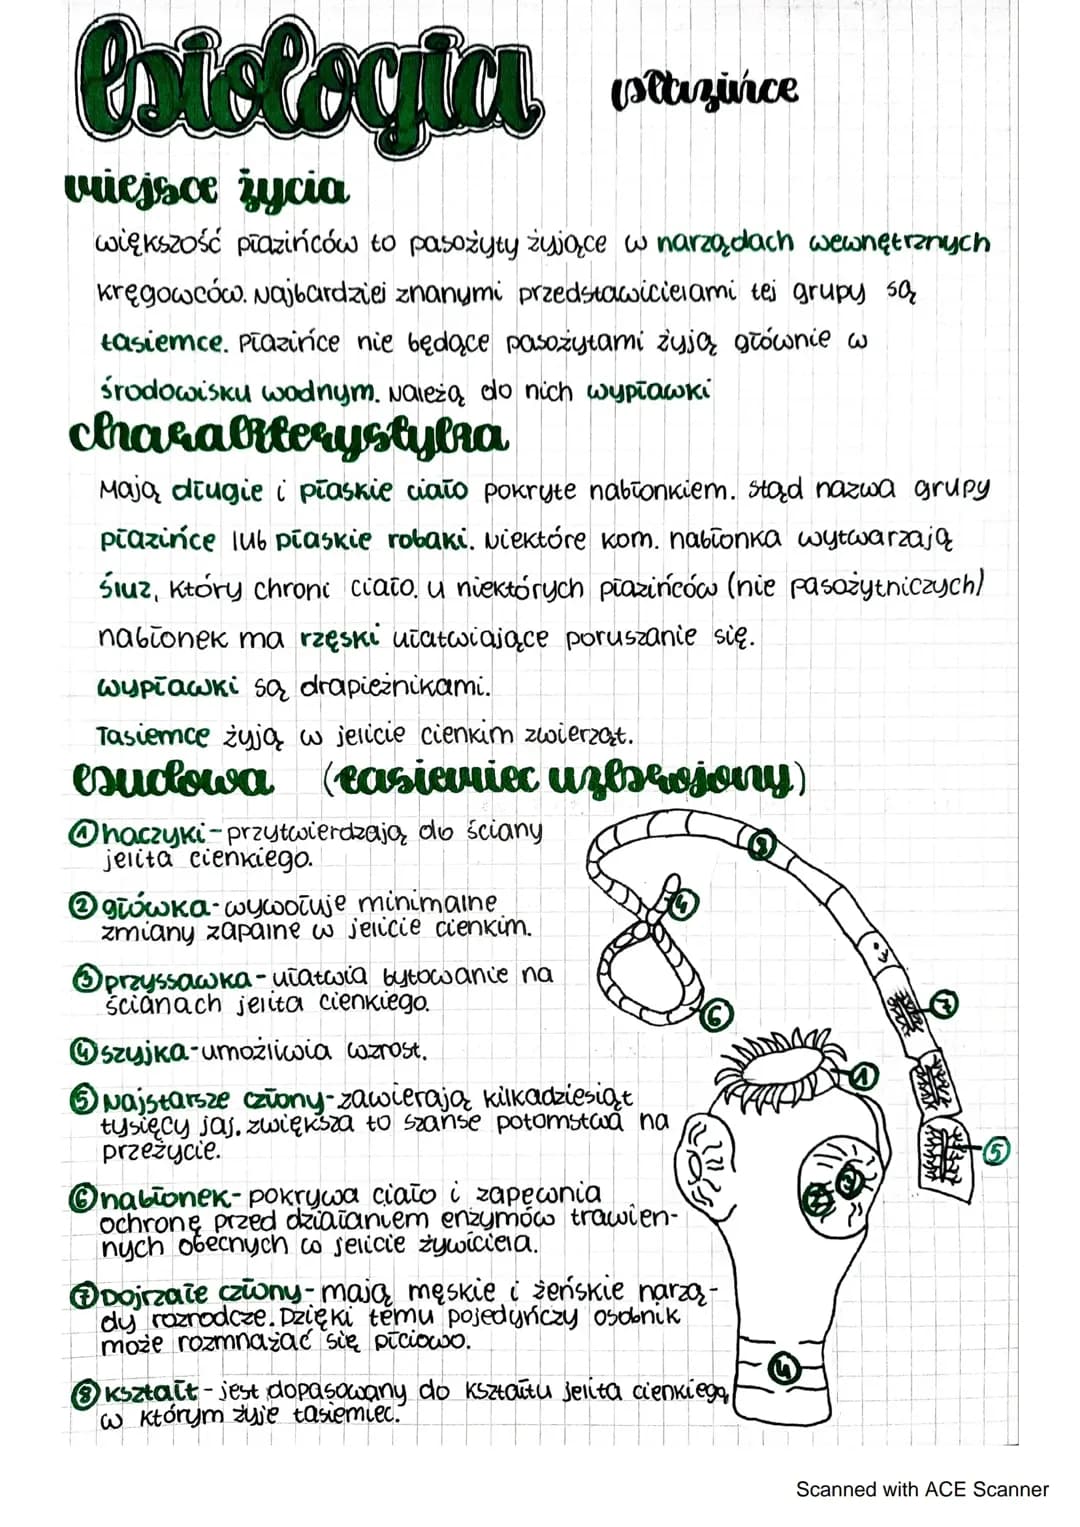 biologia płazińce
miejsce życia
większość płazińców to pasożyty żyjące w narządach wewnętrznych
kręgowców. Najbardziej znanymi przedstawicielami tej grupy są
tasiemce. Płazińce nie będące pasożytami żyją głównie w
środowisku wodnym. Należą do nich wypławki
charakterystyka
Mają długie i płaskie ciało pokryte nabłonkiem. Stąd nazwa grupy
płazińce lub płaskie robaki. Niektóre kom. nabłonka wytwarzają
śluz, który chroni ciało. U niektórych płazińców (nie pasożytniczych)
nabłonek ma rzęski ułatwiające poruszanie się.
wypławki są drapieżnikami.
Tasiemce żyją w jelicie cienkim zwierząt.
budowa (tasiemiec uzbrojony)
① haczyki - przytwierdzają do ściany
jelita cienkiego.
② główka - wywołuje minimalne
zmiany zapalne w jelicie cienkim.
③ przyssawka - ułatwia bytowanie na
ścianach jelita cienkiego.
④ szyjka - umożliwia wzrost.
⑤ Najstarsze człony - zawierają kilkadziesiąt
tysięcy jaj, zwiększa to szanse potomstwa na
przeżycie.
⑥ nabłonek - pokrywa ciało i zapewnia
ochronę przed działaniem enzymów trawien-
nych obecnych w jelicie żywiciela.
⑦ Dojrzałe człony - mają męskie i żeńskie narzą-
dy rozrodcze. Dzięki temu pojedyńczy osobnik
może rozmnażać się płciowo.
⑧ kształt - jest dopasowany do kształtu jelita cienkiego,
w którym żyje tasiemiec.
8
4
6
7
1
5
3
2
4
Scanned with ACE Scanner